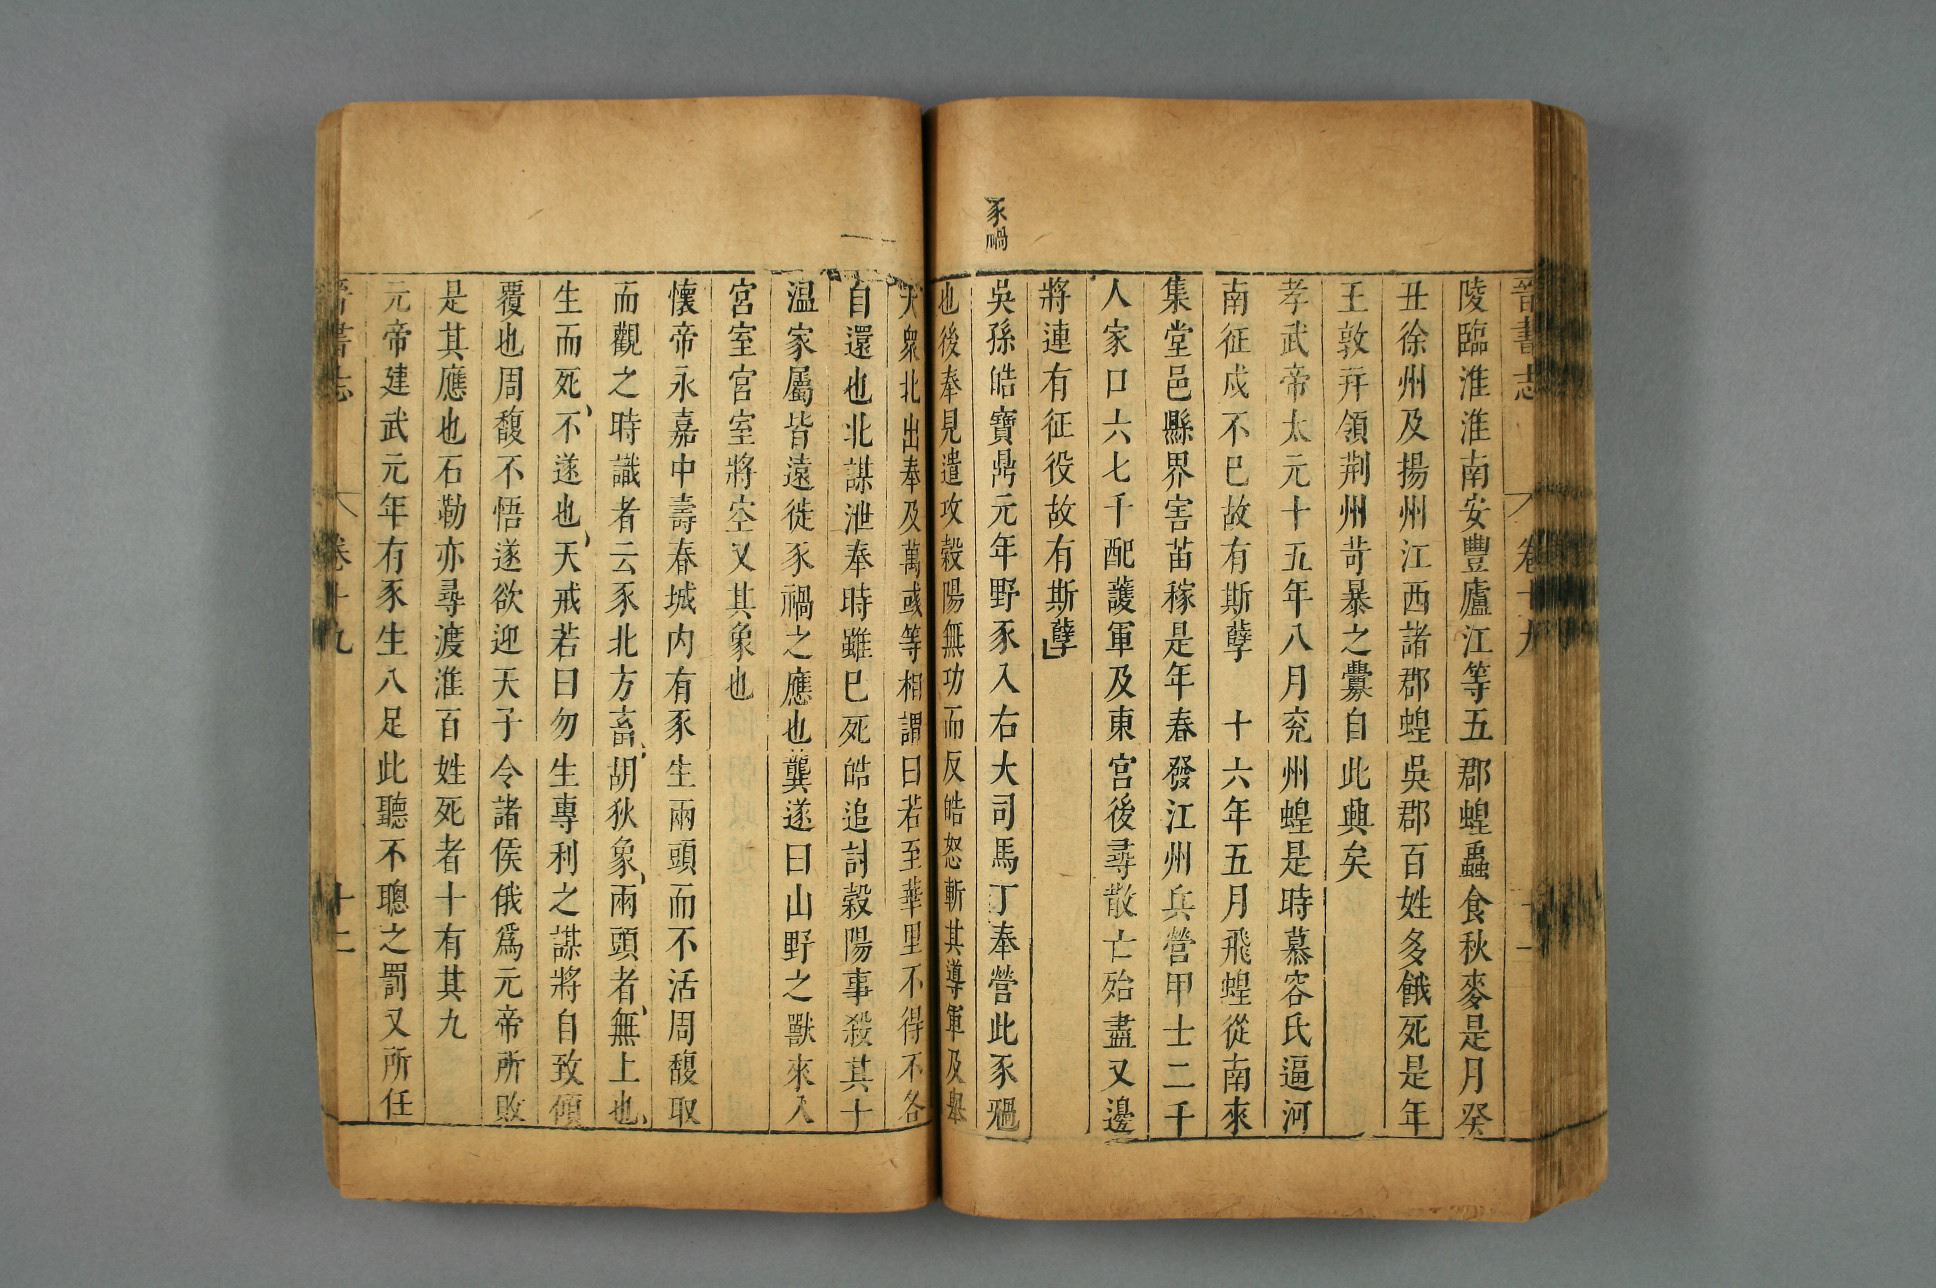 晉書志 卷十九
陵臨淮淮南安豐廬江等五郡蝗蟲食秋麥是月癸
丑徐州及揚州江西諸郡蝗吳郡百姓多餓死是年
王敦幷領荆州苛暴之釁自此興矣
孝武帝太元十五年八月兖州蝗是時慕容氏逼河
南征戍不已故有斯孽 十六年五月飛蝗從南來
集堂邑縣界害苗稼是年春發江州兵營甲士二千
人家口六七千配護軍及東宮後尋散亡殆盡又邊
將連有征役故有斯孽
豕禍
吳孫皓寶鼎元年野豕入右大司馬丁奉營此豕禍
也後奉見遣攻穀陽無功而反皓怒斬其導軍及舉
大衆北出奉及萬彧等相謂曰若至華里不得不各
自還也北謀泄奉時雖已死皓追討穀陽事殺其子
温家屬皆遠徙豕禍之應也龔遂曰山野之獸來入
宮室宮室將空又其象也
懷帝永嘉中壽春城内有豕生兩頭而不活周馥取
而觀之時識者云豕北方畜胡狄象兩頭者無上也
生而死不遂也天戒若曰勿生專利之謀將自致傾
覆也周馥不悟遂欲迎天子令諸侯俄爲元帝所敗
是其應也石勒亦尋渡淮百姓死者十有其九
元帝建武元年有豕生八足此聽不聰之罰又所任
晉書志 卷十九 十二